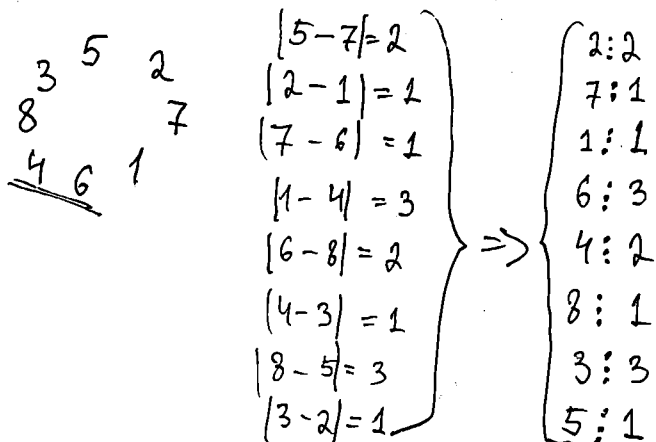 5
3 2
8 7
4 6 1
|5-7|=2
|2-1|=1
|7-6|=1
|1-4|=3
|6-8|=2
|4-3|=1
|8-5|=3
|3-2|=1
=>
2⋮2
7⋮1
1⋮1
6⋮3
4⋮2
8⋮1
3⋮3
5⋮1